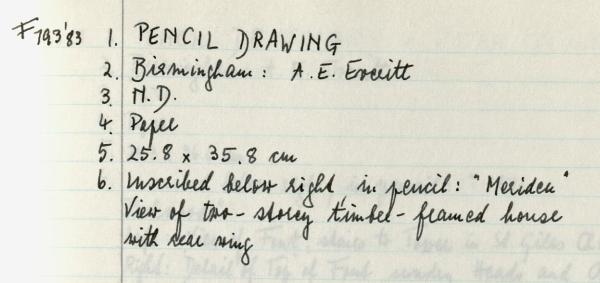 F793'83 1. PENCIL DRAWING
2. Birmingham: A. E. Everitt
3. N.D.
4. Paper
5. 25.8 x 35.8 cm
6. Inscribed below right in pencil: "Meriden"
View of two-storey timber-framed house
with rear wing